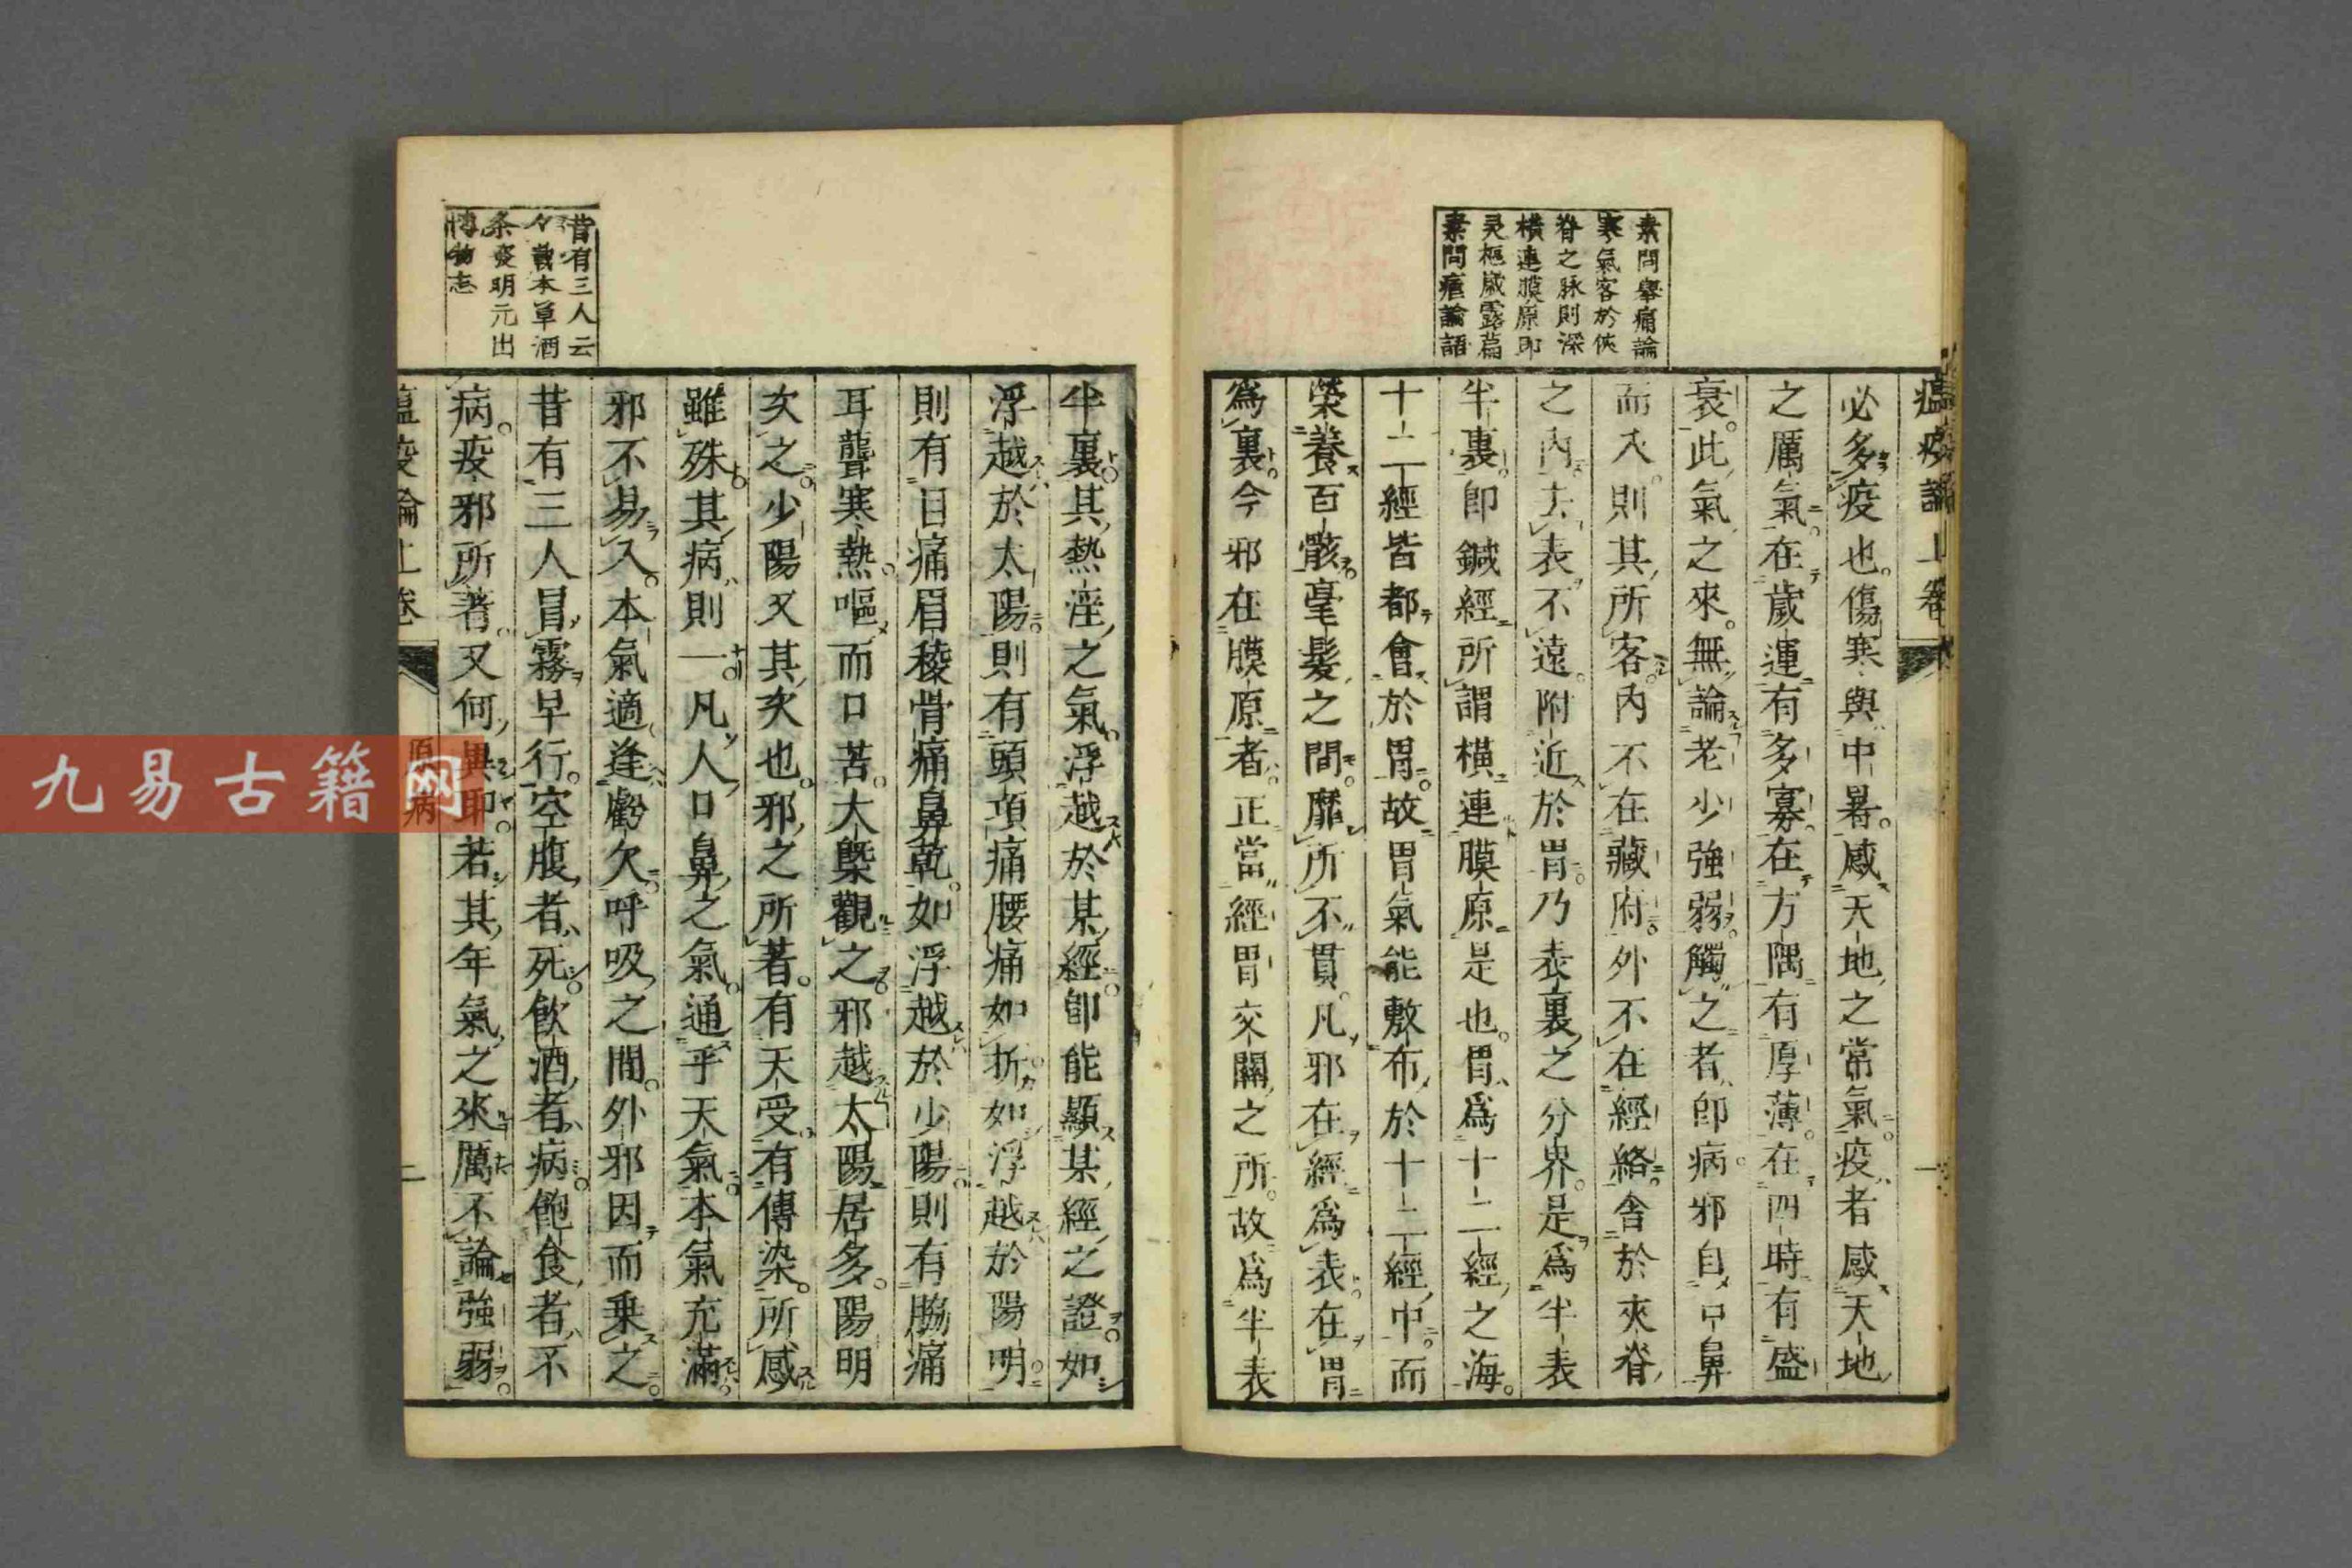 瘟疫論上卷
一
素問擧痛論
寒氣客於俠
脊之脉則深
橫連膜原即
灵樞歲露篇
素問瘧論語
必多疫也傷寒與中暑感天地之常氣疫者感天地
之厲氣在歲運有多寡在方隅有厚薄在四時有盛
衰此氣之來無論老少強弱觸之者卽病邪自口鼻
而入則其所客內不在藏府外不在經絡舍於夾脊
之內去表不遠附近於胃乃表裏之分界是爲半表
半裏卽鍼經所謂橫連膜原是也胃爲十二經之海
十二經皆都會於胃故胃氣能敷布於十二經中而
榮養百骸毫髮之間靡所不貫凡邪在經爲表在胃
爲裏今邪在膜原者正當經胃交關之所故爲半表
昔有三人云
々載本草酒
条發明元出
博物志
半裏其熱淫之氣浮越於某經卽能顯某經之證如
浮越於太陽則有頭項痛腰痛如折如浮越於陽明
則有目痛眉稜骨痛鼻乾如浮越於少陽則有脇痛
耳聾寒熱嘔而口苦大槩觀之邪越太陽居多陽明
次之少陽又其次也邪之所著有天受有傳染所感
雖殊其病則一凡人口鼻之氣通乎天氣本氣充滿
邪不易入本氣適逢虧欠呼吸之間外邪因而乗之
昔有三人冒霧早行空腹者死飲酒者病飽食者不
病疫邪所著又何異耶若其年氣之來厲不論強弱
瘟疫論上卷
原病
二
九易古籍网